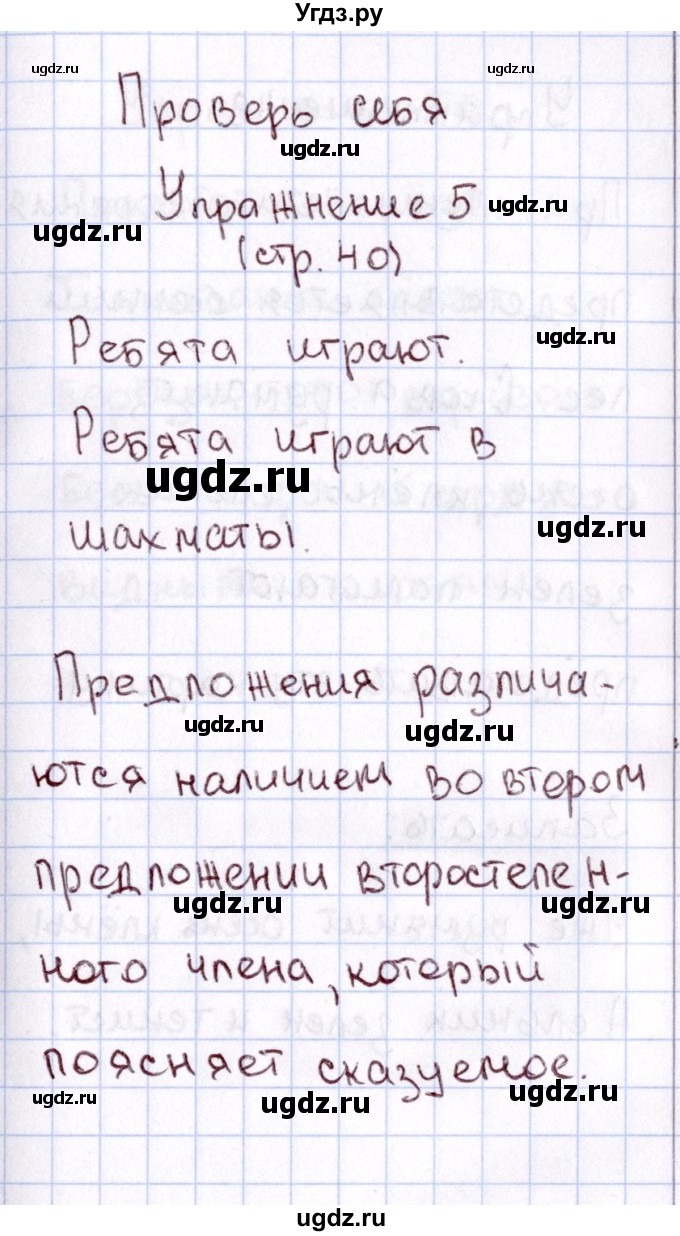 Угдз.ру
ugdz.ru ugdz.ru
Проверь себя
ugdz.ru
Упражнение 5 ugdz.ru
ugdz.ru (стр. 40)
Ребята играют. ugdz.ru
Ребята играют в
ugdz.ru
шахматы. ugdz.ru
Предложения различа-
ugdz.ru ugdz.ru
ются наличием во втором
предложении второстепен-
ugdz.ru ugdz.ru
ного члена, который
поясняет сказуемое.
ugdz.ru ugdz.ru ugdz.ru
ugdz.ru